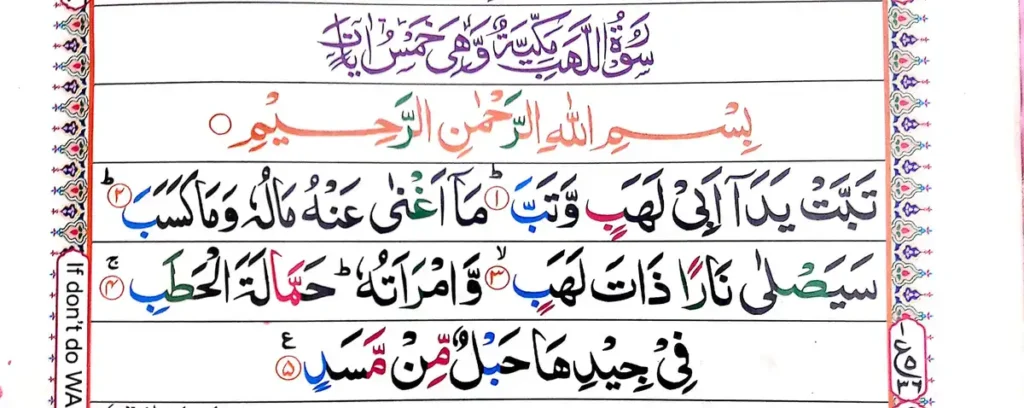 سُوْرَةُ اللَّهَبِ مَكِّيَّةٌ وَّهِيَ خَمْسُ اٰيَاتٍ
بِسْمِ اللّٰهِ الرَّحْمٰنِ الرَّحِيْمِ ○
تَبَّتْ يَدَاۤ اَبِىْ لَهَبٍ وَّتَبَّ ؕ﴿۱﴾ مَاۤ اَغْنٰى عَنْهُ مَالُهٗ وَمَا كَسَبَ ؕ﴿۲﴾
سَيَصْلٰى نَارًا ذَاتَ لَهَبٍ ۙ﴿۳﴾ وَّامْرَاَتُهٗ ؕ حَمَّالَةَ الْحَطَبِ ۚ﴿۴﴾
فِىْ جِيْدِهَا حَبْلٌ مِّنْ مَّسَدٍ ﴿۵﴾ ع
If don't do WA
ع ۵ ۳۶